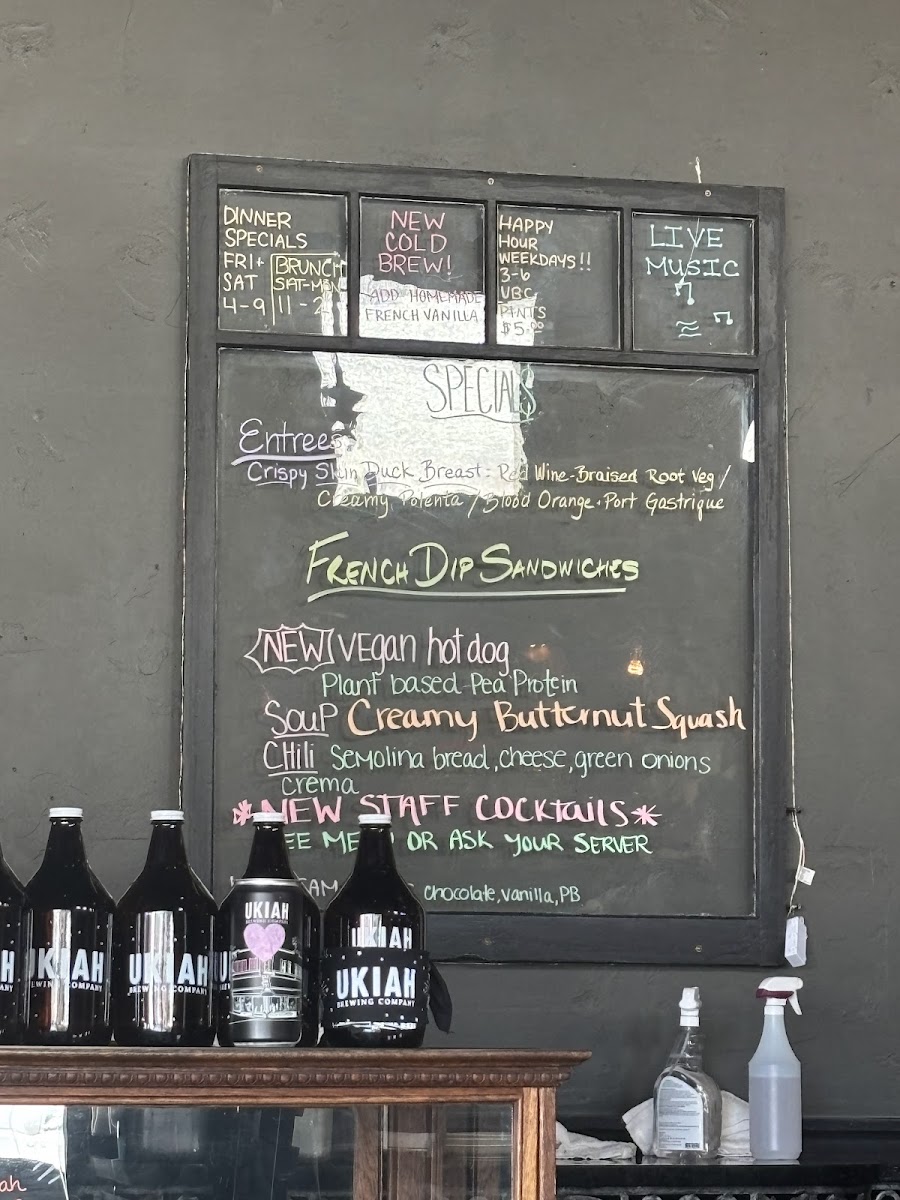 DINNER
SPECIALS
FRI+
SAT
4-9
BRUNCH
SAT-MON
11-2
NEW
COLD
BREW!
ADD HOMEMADE
FRENCH VANILLA
HAPPY
HOUR
WEEKDAYS!!
3-6
UBC
PINTS
$5.00
LIVE
MUSIC
SPECIALS
Entrees:
Crispy Skin Duck Breast - Red Wine-Braised Root Veg /
Creamy Polenta / Blood Orange-Port Gastrique
FRENCH DIP SANDWICHES
NEW vegan hotdog
Plant based Pea Protein
SOUP Creamy Butternut Squash
CHili Semolina bread, cheese, green onions
crema
*NEW STAFF COCKtails*
EE ME OR ASK YOUR SERVER
AM chocolate, vanilla, PB
UKIAH
BREWING COMPANY
UKIAH
BREWING COMPANY
UKIAH
BREWING COMPANY
UKIAH
UKIAH
BREWING COMPANY